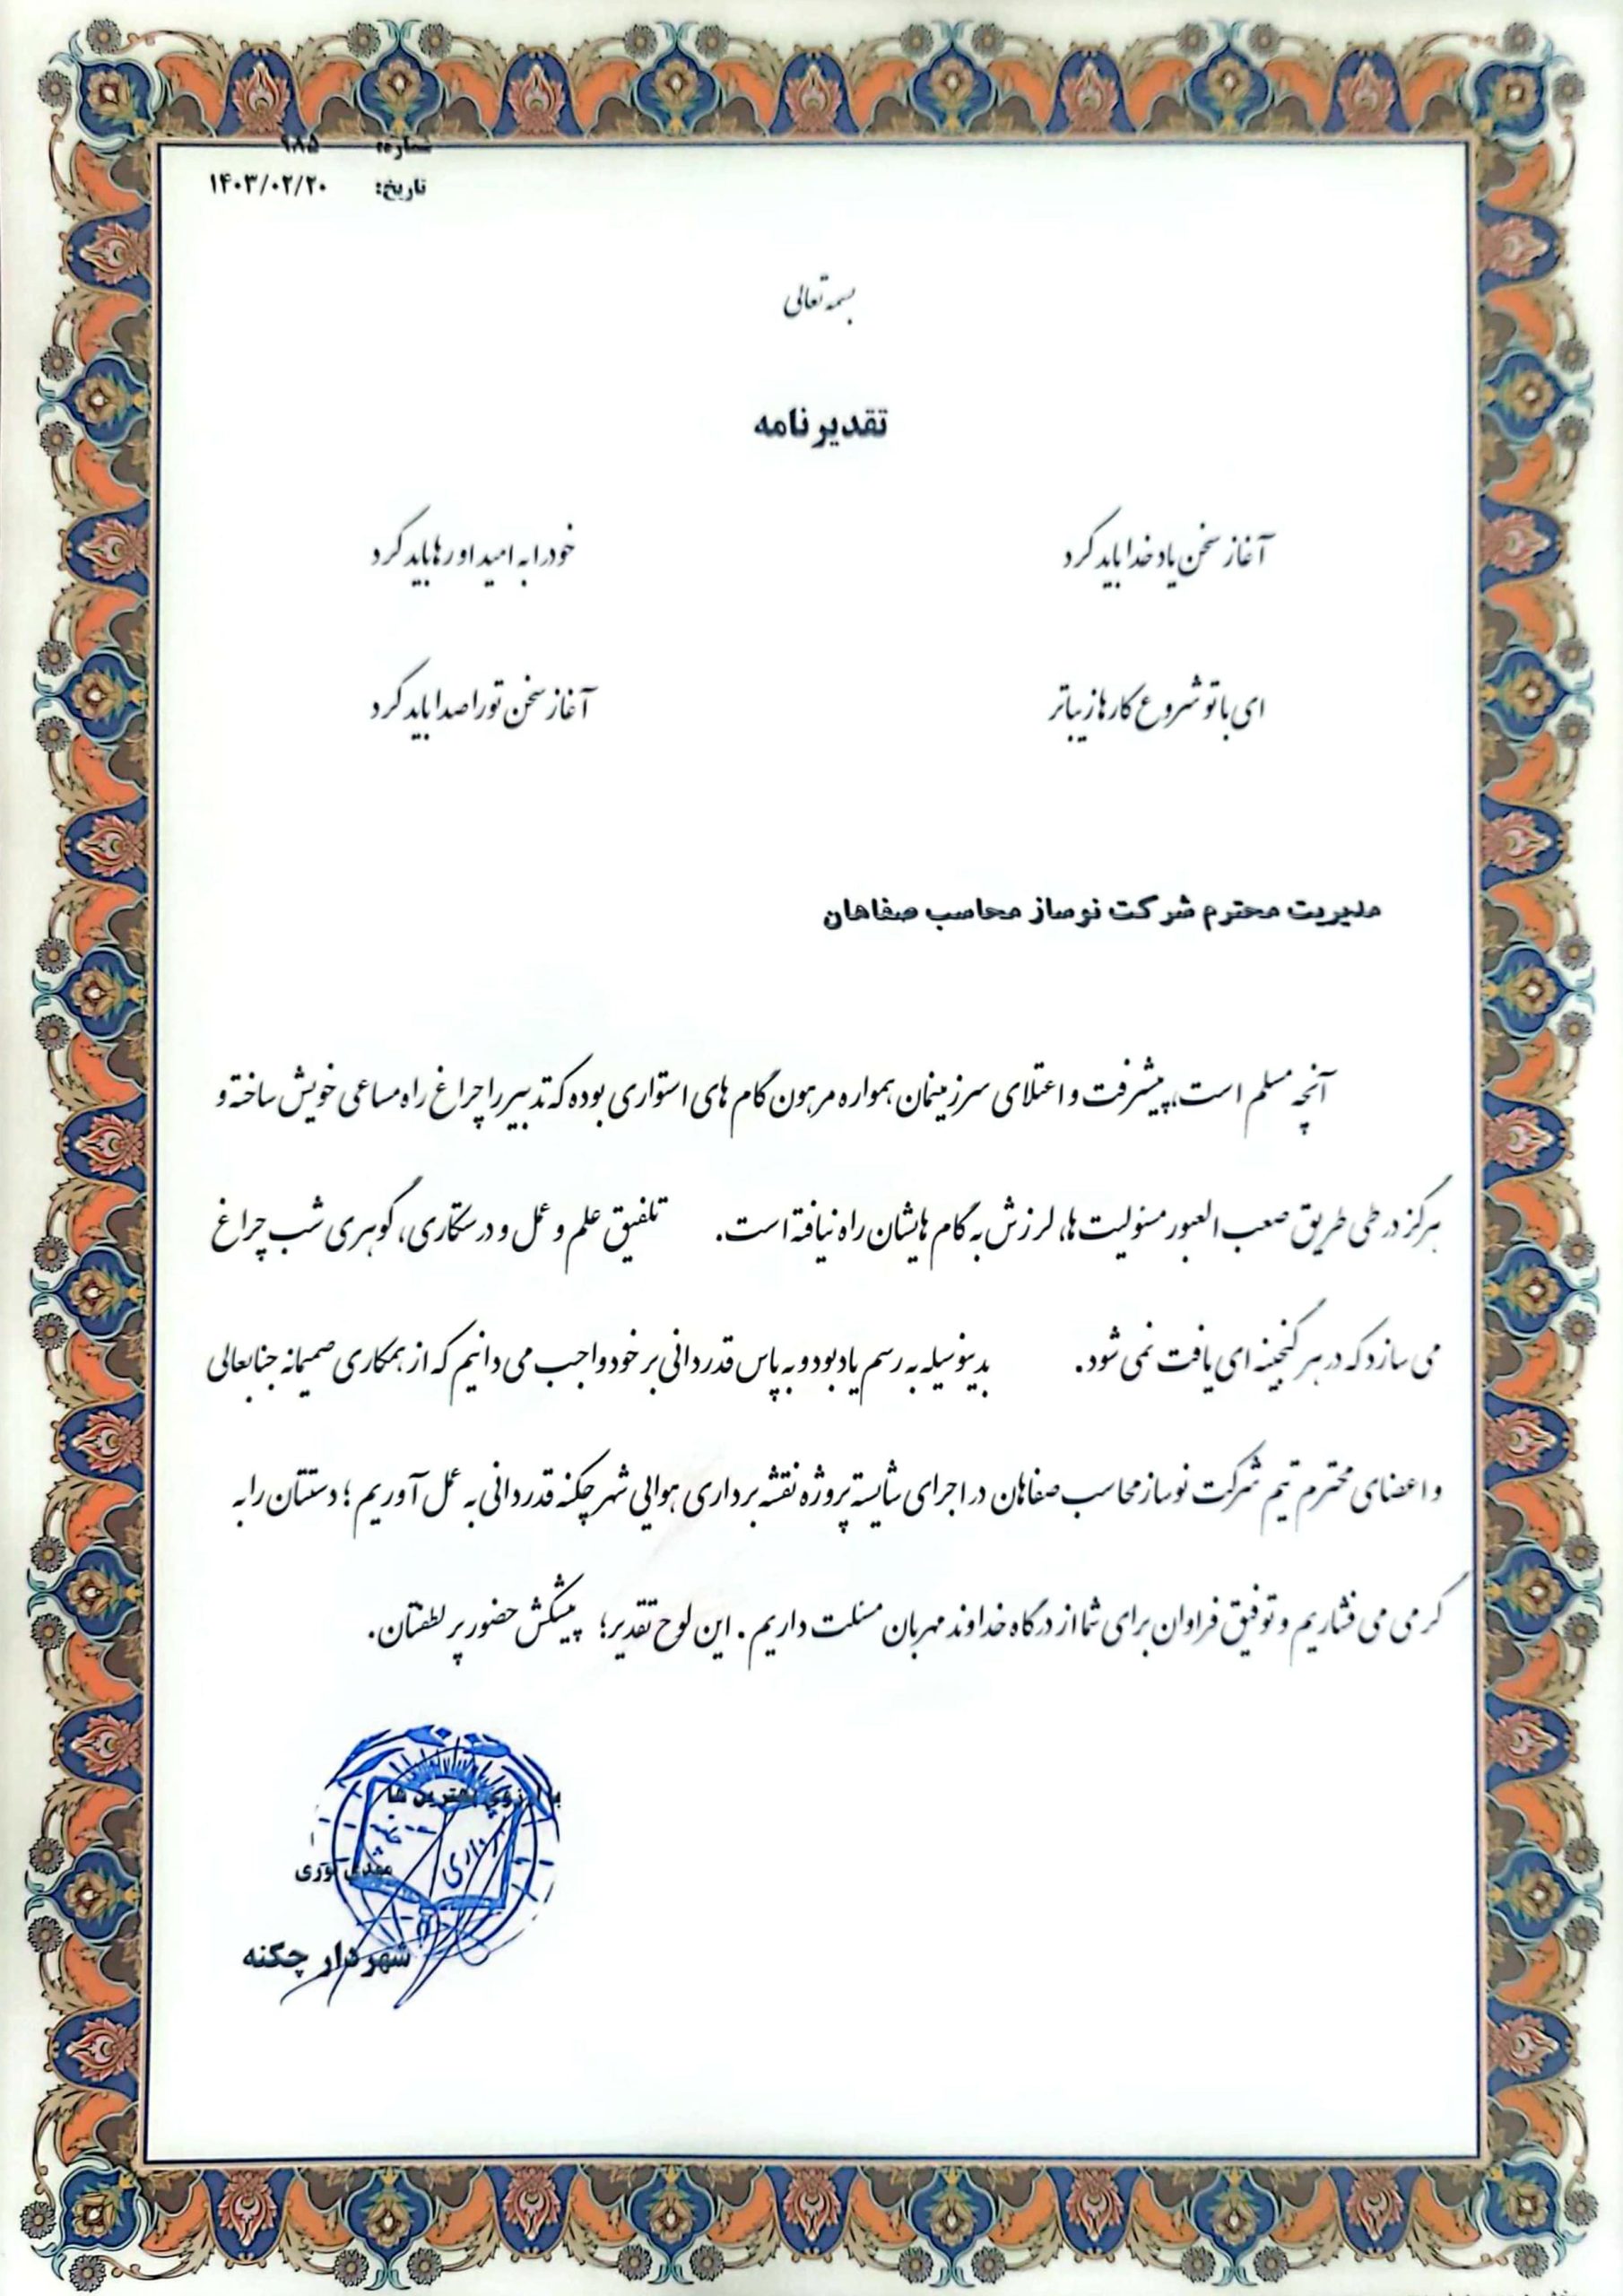 شماره: ۹۸۵
تاریخ: ۱۴۰۳/۰۲/۲۰
بسمه تعالی
تقدیرنامه
آغاز سخن یاد خدا باید کرد خود را به امید او رها باید کرد
ای با تو شروع کارها زیباتر آغاز سخن تو را صدا باید کرد
مدیریت محترم شرکت نوساز محاسب صفاهان
آنچه مسلم است، پیشرفت و اعتلای سرزمینمان همواره مرهون گام های استواری بوده که تدبیر را چراغ راه مساعی خویش ساخته و
هرگز در طی طریق صعب العبور مسئولیت ها، لرزش به گام هایشان راه نیافته است. تلفیق علم و عمل و درستکاری، گوهری شب چراغ
می سازد که در هر گنجینه ای یافت نمی شود. بدینوسیله به رسم یادبود و به پاس قدردانی بر خود واجب می دانیم که از همکاری صمیمانه جنابعالی
و اعضای محترم تیم شرکت نوساز محاسب صفاهان در اجرای شایسته پروژه نقشه برداری هوایی شهر چکنه قدردانی به عمل آوریم؛ دستتان را به
گرمی می فشاریم و توفیق فراوان برای شما از درگاه خداوند مهربان مسئلت داریم. این لوح تقدیر؛ پیشکش حضور پر لطفتان.
با آرزوی بهترین ها
مهدی نوری
شهردار چکنه